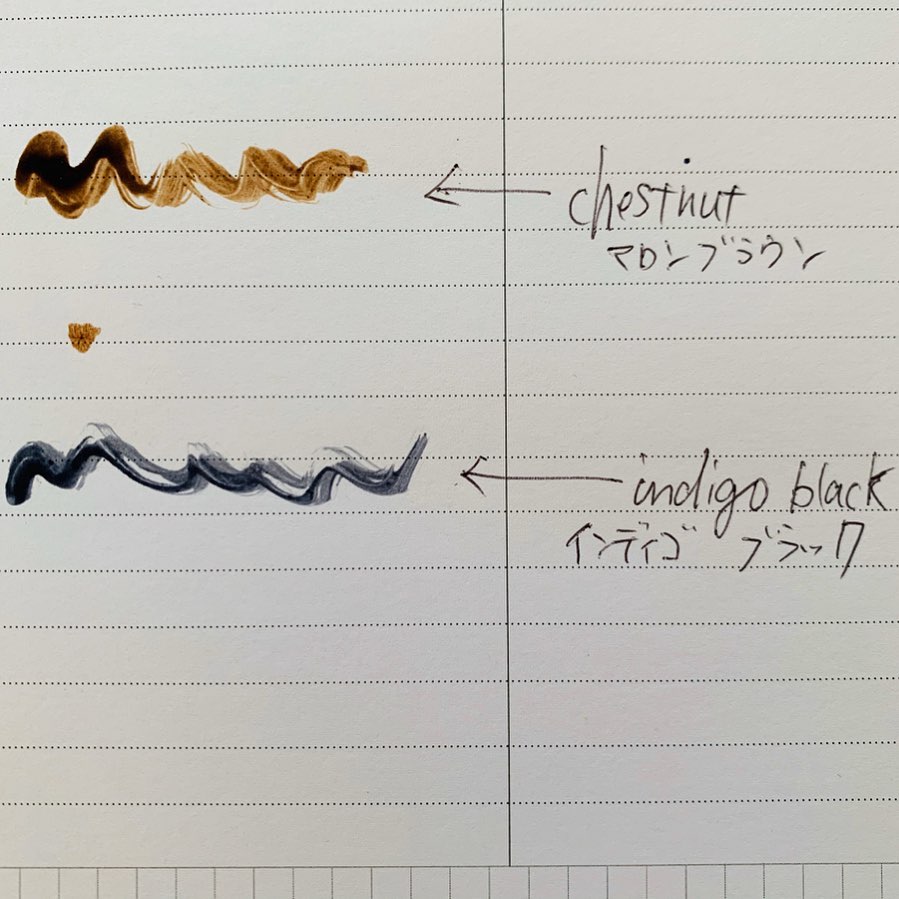 chestnut
マロンブラウン
indigo black
インディゴ ブラック